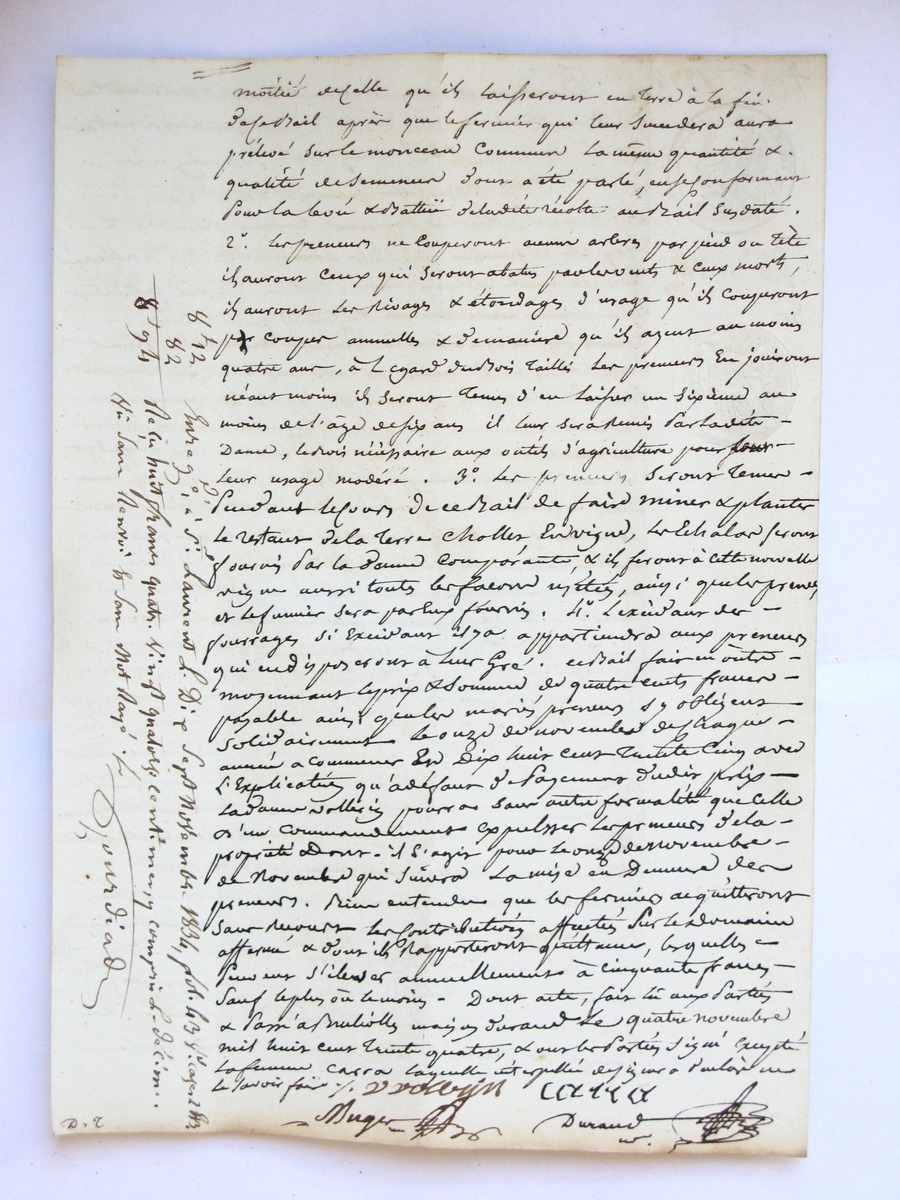 moitié de celle qu'ils laisseront en terre à la fin
de ce Bail après que le fermier qui leur succedera aura
prélevé sur le monceau commun la même quantité &
qualité de semence dont a été parlé, en se conformant
pour la levée & Battue de la dite récolte au Bail susdaté.
2°. Les preneurs ne couperont aucuns arbres par pied ou tête
ils auront ceux qui seront abatus par les vents & ceux morts,
ils auront les Rivages & étondages d'usage qu'ils couperont
par coupes annuelles & de manière qu'ils ayent au moins
quatre ans, à l'égard du Bois taillis les preneurs en jouiront
néantmoins ils seront tenus d'en laisser un sixième au
moins de l'âge de six ans il leur sera remis par la dite
Dame, le bois nécéssaire aux outils d'agriculture pour
leur usage modéré. 3°. Les preneurs seront tenus
pendant le cours de ce Bail de faire miner & planter
le restant de la terre Chollet en vigne, les Echalas seront
fournis par la Dame comparante, & ils feront à cette nouvelle
vigne aussi toutes les façons usitées, ainsi que les provins,
et le fumier sera par Eux fournis. 4°. L'excédant des
fourrages si Excédant il y a appartiendra aux preneurs
qui en disposeront à leur Gré. ce Bail fait en outre
moyennant le prix & somme de quatre cents francs
payable ainsi que les mariés preneurs s'y obligent
solidairement le onze de novembre de chaque
année a commencer En dix huit cent trente cinq avec
l'Explication qu'à défaut de payement dudit prix
la dame pourra sans autre formalité que celle
d'un commandement expulser les preneurs de la
propriété dont il s'agit pour le onze de novembre
de novembre qui suivra la mise en Demeure des
preneurs. Bien entendu que les fermiers acquitteront
sans recours les contributions affectées sur le domaine
affermé & dont ils rapporteront quittance, lesquelles
peuvent s'élever annuellement à cinquante francs
sauf le plus ou le moins. Dont acte, fait lû aux Parties
& Passé a maison Durand Le quatre novembre
mil huit cent trente quatre, & ont les Parties signé excepté
la femme Carra laquelle interpellée de signer a déclaré ne
le savoir faire ./.
CARRA
Durand
8f 12
82
8f 94
Enregé. à St. Laurent le Dix Sept Novembre 1834, fol. 43
Reçu huit francs quatre vingt quatorze centimes, y compris le décime.